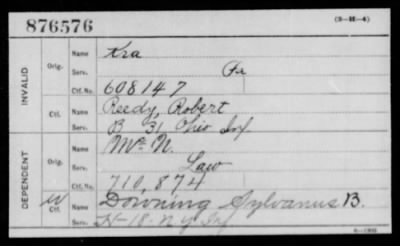 876576 (3-H-4)
INVALID
Orig. Name Kra
Serv. Pa
Ctf. No. 608147
Ctf. Name Reedy, Robert
Serv. B 31 Ohio Inf
DEPENDENT
Orig. Name Mc N.
Serv. Law
Ctf. No. 710,874
W Ctf. Name Downing Sylvanus B.
Serv. H-18-N.Y Inf